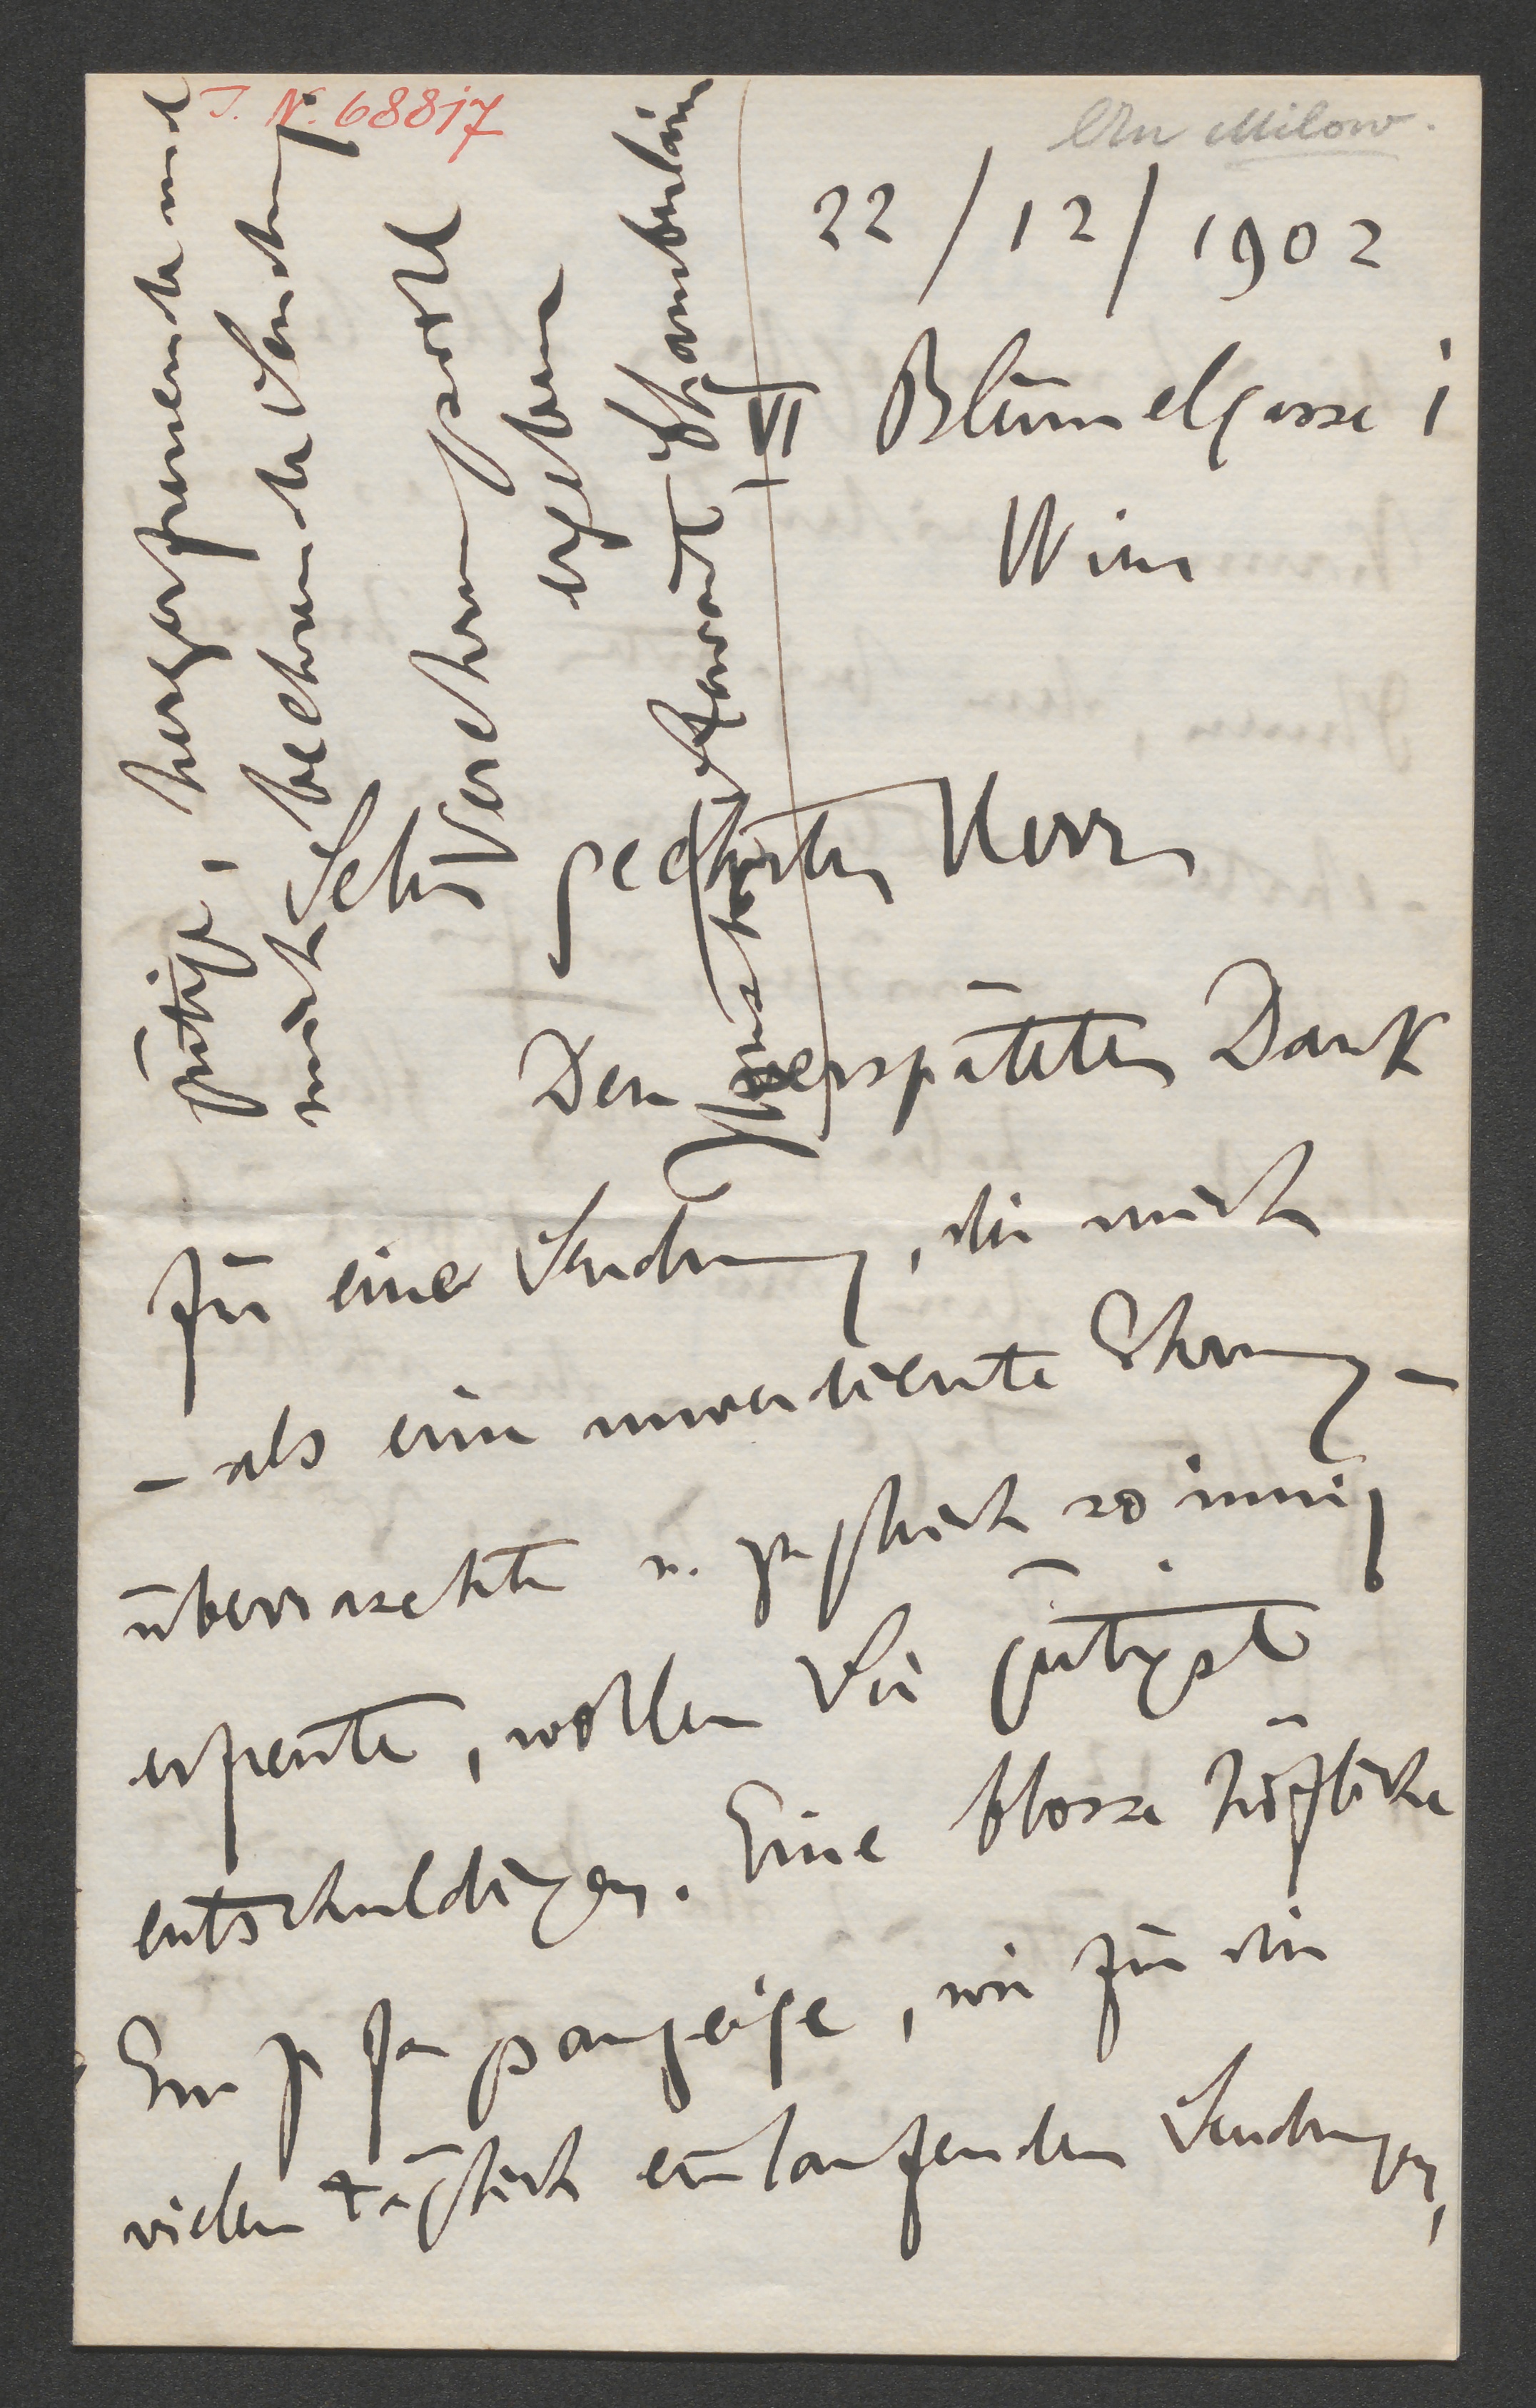 J. N. 68817
An Milow.
22/12/1902
VI Blümelgasse 1
Wien
Sehr geehrter Herr
Den verspäteten Dank
für eine Sendung, die mich
– als eine unverdiente Ehrung –
überraschte u. zugleich so innig
erfreute, wollen Sie gütigst
entschuldigen. Eine blosse höfliche
Empfangsanzeige, wie für die
vielen täglich einlaufenden Sendungen,
gütige, herzerfreuende und
mich beehrende Sendung.
Verehrungsvoll
ergebenst
Houston Stewart Chamberlain